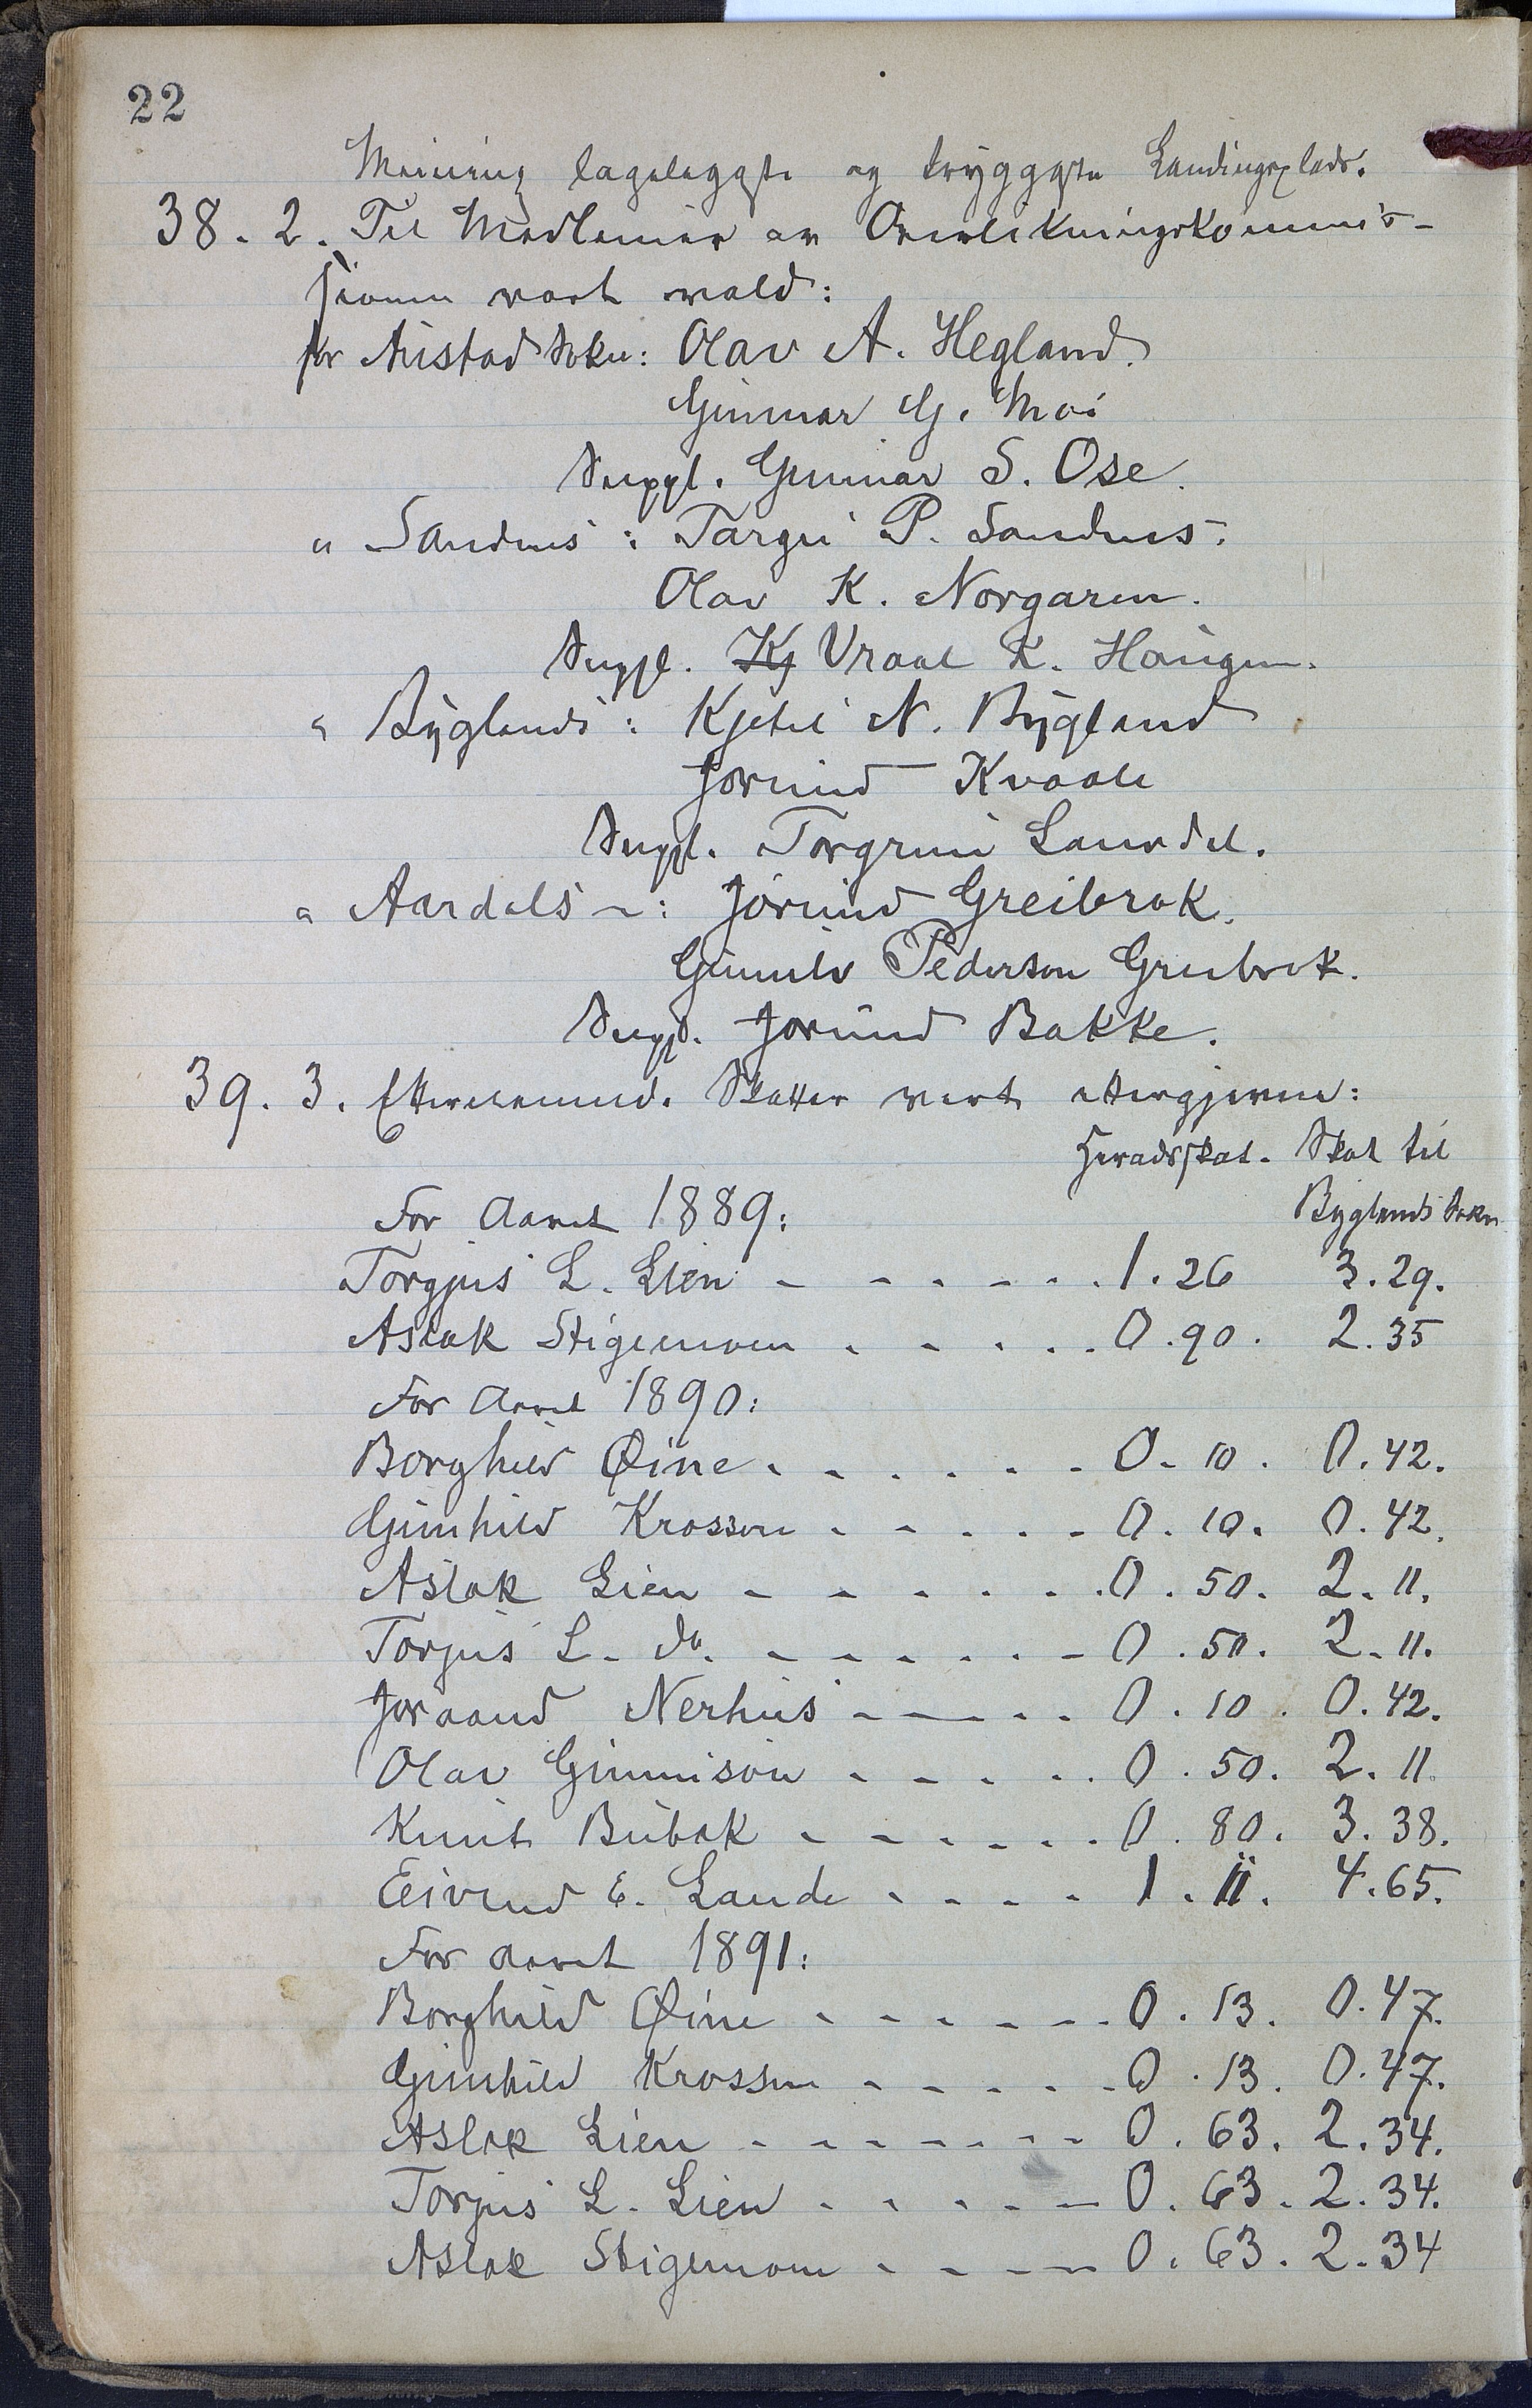 22
Meining lageleggste og tryggste Landingsplads.
38. 2. Til Medlemer av Overlikningskommis-
sionen vart vald:
for Austad Sokn: Olav A. Hegland.
Gunnar G. Moi
Suppl. Gunnar S. Ose.
" Sandnes: Targei P. Sandnes.
Olav K. Norgaren.
Suppl. Kj Vraal K. Haugen.
" Byglands: Kjetil N. Bygland
Jorund Kvaale
Suppl. Torgrim Laurdal.
" Aardals -: Jorund Greibrok.
Gunulv Pederson Greibrok.
Suppl. Jorund Bakke.
39. 3. Etternemnde Skatter vart ettergjevne:
Heradsskat. Skat til
For Aaret 1889: Byglands Sokn
Torgjus L. Lien - - - - - - 1.26 3.29.
Aslak Stigemoen . - . . . 0.90. 2.35
For Aaret 1890:
Borghild Øine . - . . - - 0.10. 0.42.
Gunhild Krossen . - . . - 0.10. 0.42.
Aslak Lien - - - . - . . 0.50. 2.11.
Torjus L. do. - - - . . - 0.50. 2.11.
Joraand Nerhus - - - . . 0.10. 0.42.
Olav Gunnison . - - . . 0.50. 2.11.
Knut Bubak - - - . . . 0.80. 3.38.
Eivind E. Lande . - - . 1.11. 4.65.
For Aaret 1891:
Borghild Øine - - - - - - 0.13. 0.47.
Gunhild Krossen - - - . . 0.13. 0.47.
Aslak Lien - - - - - - - 0.63. 2.34.
Torjus L. Lien . - - - - 0.63. 2.34.
Aslak Stigemoen - - - - 0.63. 2.34